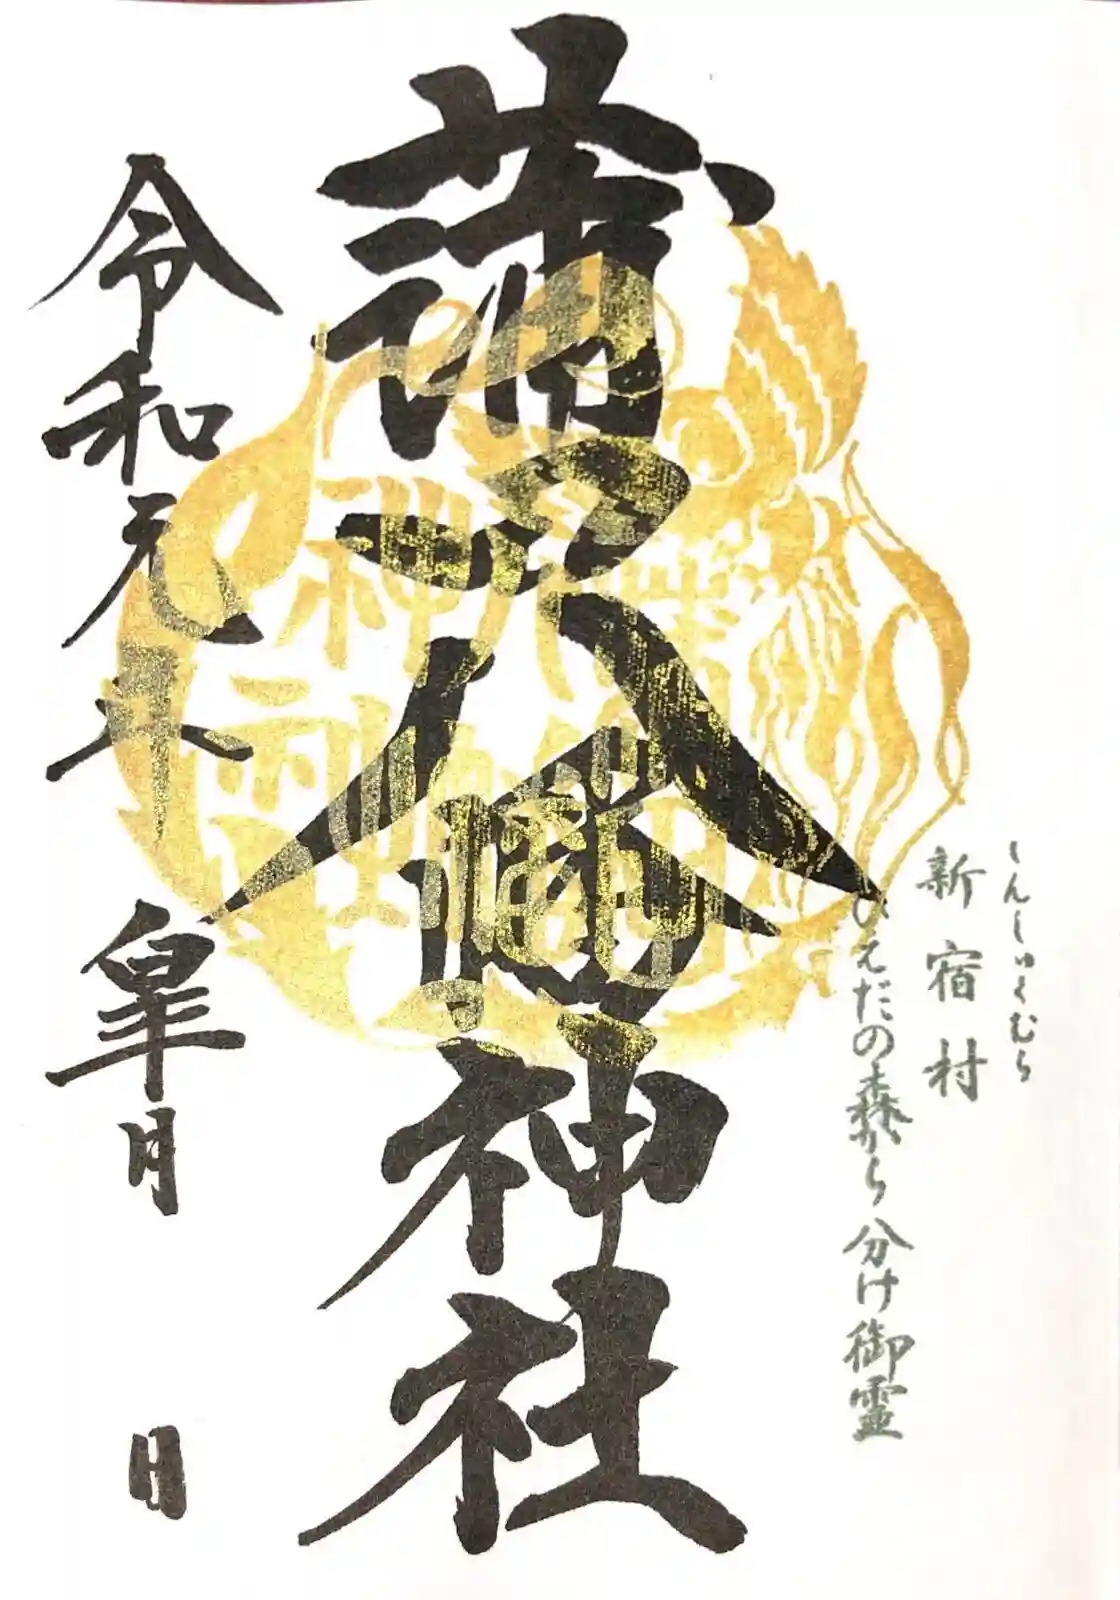 しんしゅくむら
新宿村
ひえだの森から分け御霊
蒲田八幡神社
令和元年 皐月 日